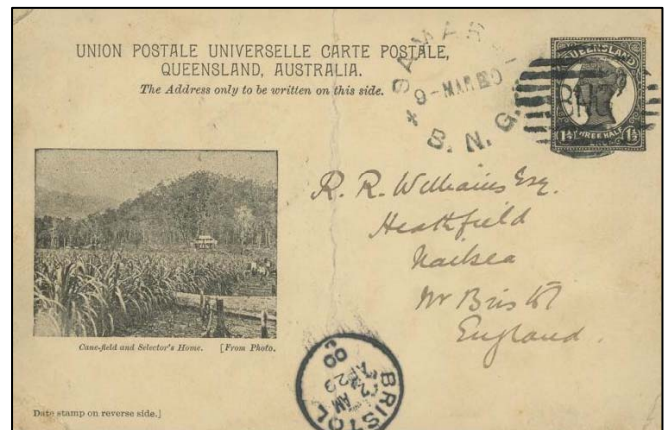 UNION POSTALE UNIVERSELLE CARTE POSTALE,
QUEENSLAND, AUSTRALIA.
The Address only to be written on this side.
SAMARAI
9-MAR
B. N. G.
QUEENSLAND
1½ THREE HALF 1½
R. R. Williams Esq.
Heathfield
Nailsea
Nr Bristol
England.
Cane-field and Selector's Home. [From Photo.
BRISTOL
AM
AP 29
00
Date stamp on reverse side.]